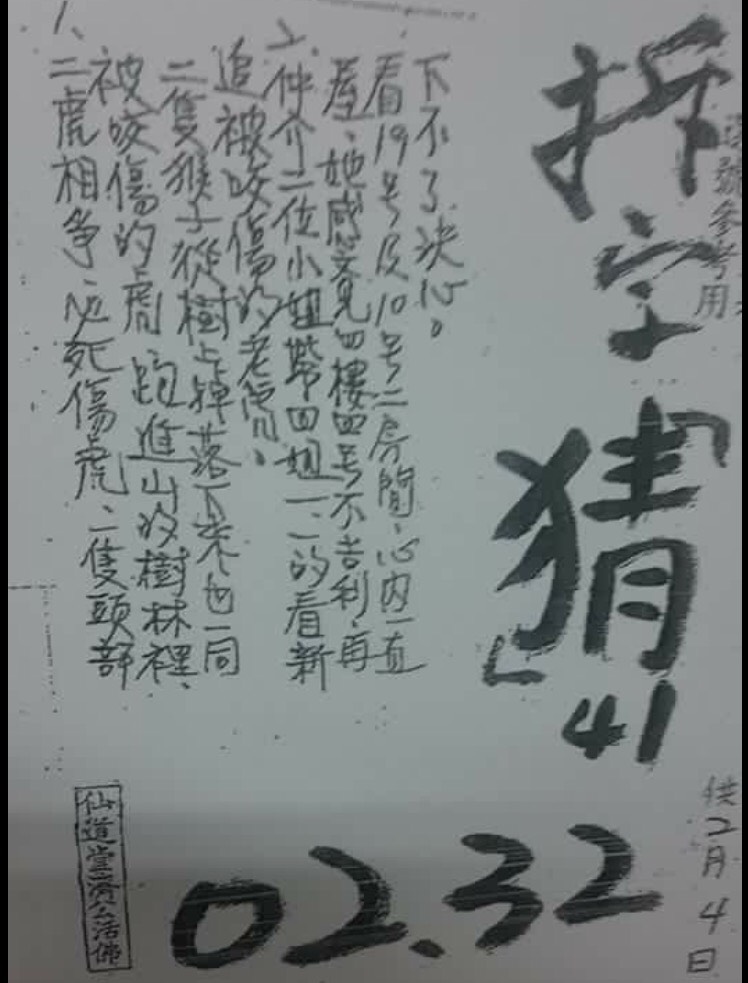 拆字「猜」41
號參考用
1、二虎相爭必死傷虎、二隻頭部
被咬傷的虎跑進山的樹林裡、
二隻猴子從樹上掉落下來也一同
追被咬傷的老虎。
2、仲介二位小姐帶四姐一、一的看新
屋、她感覺見四樓四号不吉利、再
看19号及10号二房間、心內一直
下不了決心。
供2月4日
02.32
仙道堂濟公活佛